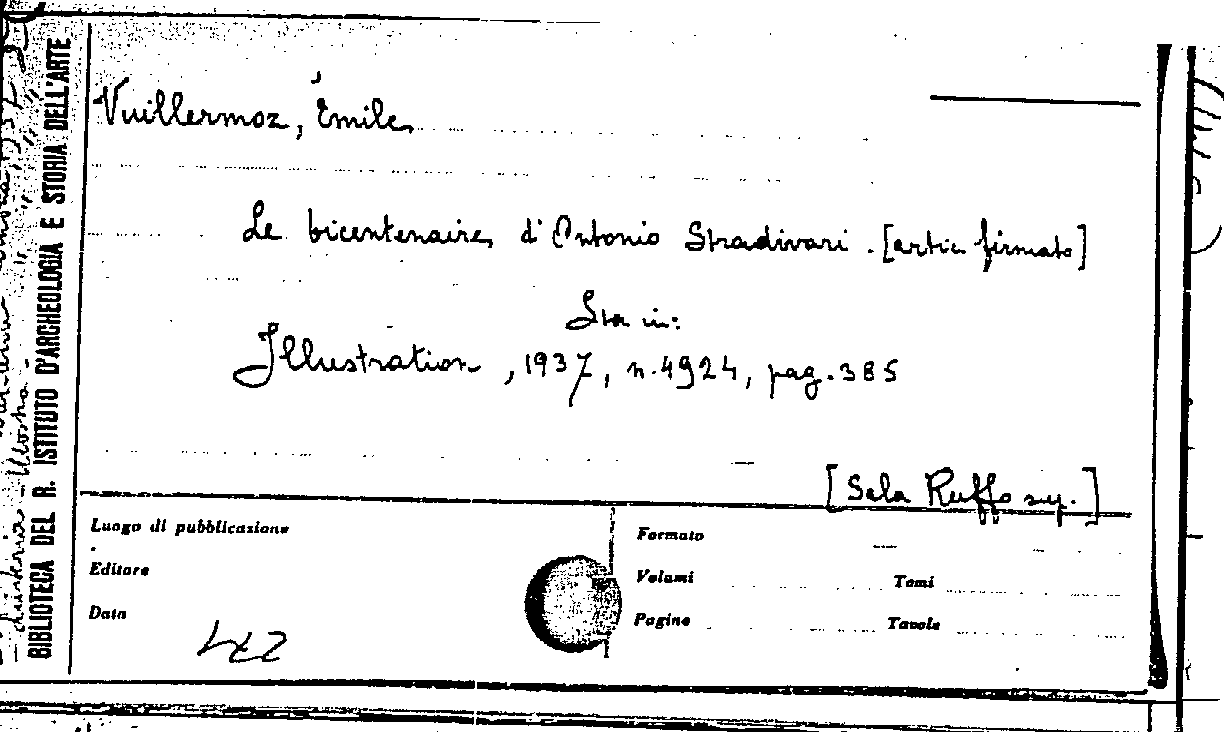 BIBLIOTECA DEL R. ISTITUTO D'ARCHEOLOGIA E STORIA DELL'ARTE
Vuillermoz, Émile
Le bicentenaire d'Antonio Stradivari. [artic. firmato]
Sta in:
Illustration, 1937, n. 4924, pag. 385
[Sala Ruffo sup.]
Luogo di pubblicazione
Editore
Data
Formato
Volumi
Tomi
Pagine
Tavole